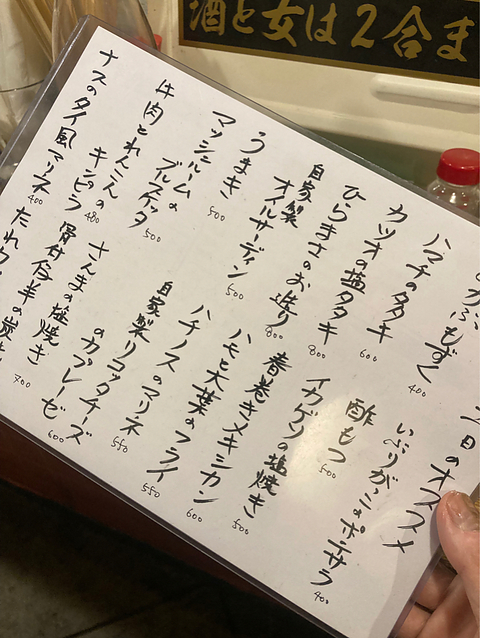 酒と女は2合ま
日のオススメ
いぶりがっこのポテサラ
400
酢もつ
500
イカゲソの塩焼き
500
春巻きメキシカン
600
ハモと大葉のフライ
550
ハチノスのマリネ
550
自家製リコッタチーズ
のカプレーゼ
600
さんまの塩焼き
700
骨付仔羊の炭
たれカ
かぶもずく
400
ハマチのタタキ
600
カツオの塩タタキ
800
ひらまさのお造り
800
自家製
オイルサーディン
500
うまき
500
マッシュルームの
ブルスケッタ
500
牛肉とれんこんの
キンピラ
480
ナスのタイ風マリネ
400